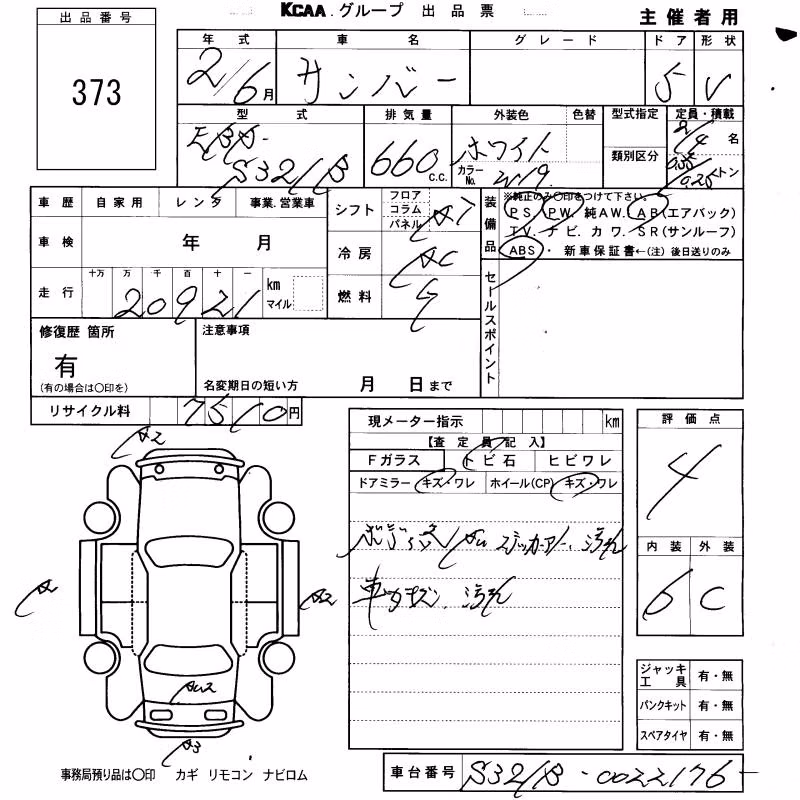 KCAA.グループ 出品票
主催者用
出品番号
373
年式 車名 グレード ドア 形状
2/6月 サンバー 5 V
型式 排気量 外装色 色替 型式指定 定員・積載
EBD-S321B 660 C.C. ホワイト カラーNo. W19 類別区分 2/4名
0.35/0.25トン
車歴 自家用 レンタ 事業.営業車
シフト フロア コラム パネル AT
装備品 ※純正のみ〇印をつけて下さい。
PS. PW. 純AW. AB(エアバック)
TV. ナビ. カワ. SR(サンルーフ)
ABS・ 新車保証書←(注) 後日送りのみ
車検 年 月
冷房 AC
走行 十万 万 千 百 十 一 km マイル
20921
燃料 G
セールスポイント
修復歴 箇所
有
(有の場合は〇印を)
注意事項
名変期日の短い方 月 日まで
リサイクル料 7510円
現メーター指示 km
【査定員記入】
Fガラス トビ石 ヒビワレ
ドアミラー キズ・ワレ ホイール(CP) キズ・ワレ
ステッカーアト、汚れ
車内キズ、汚れ
評価点
4
内装 外装
6 C
A2
A2
A2
A3
ジャッキ工具 有・無
パンクキット 有・無
スペアタイヤ 有・無
事務局預り品は〇印 カギ リモコン ナビロム
車台番号 S321B-0022176-